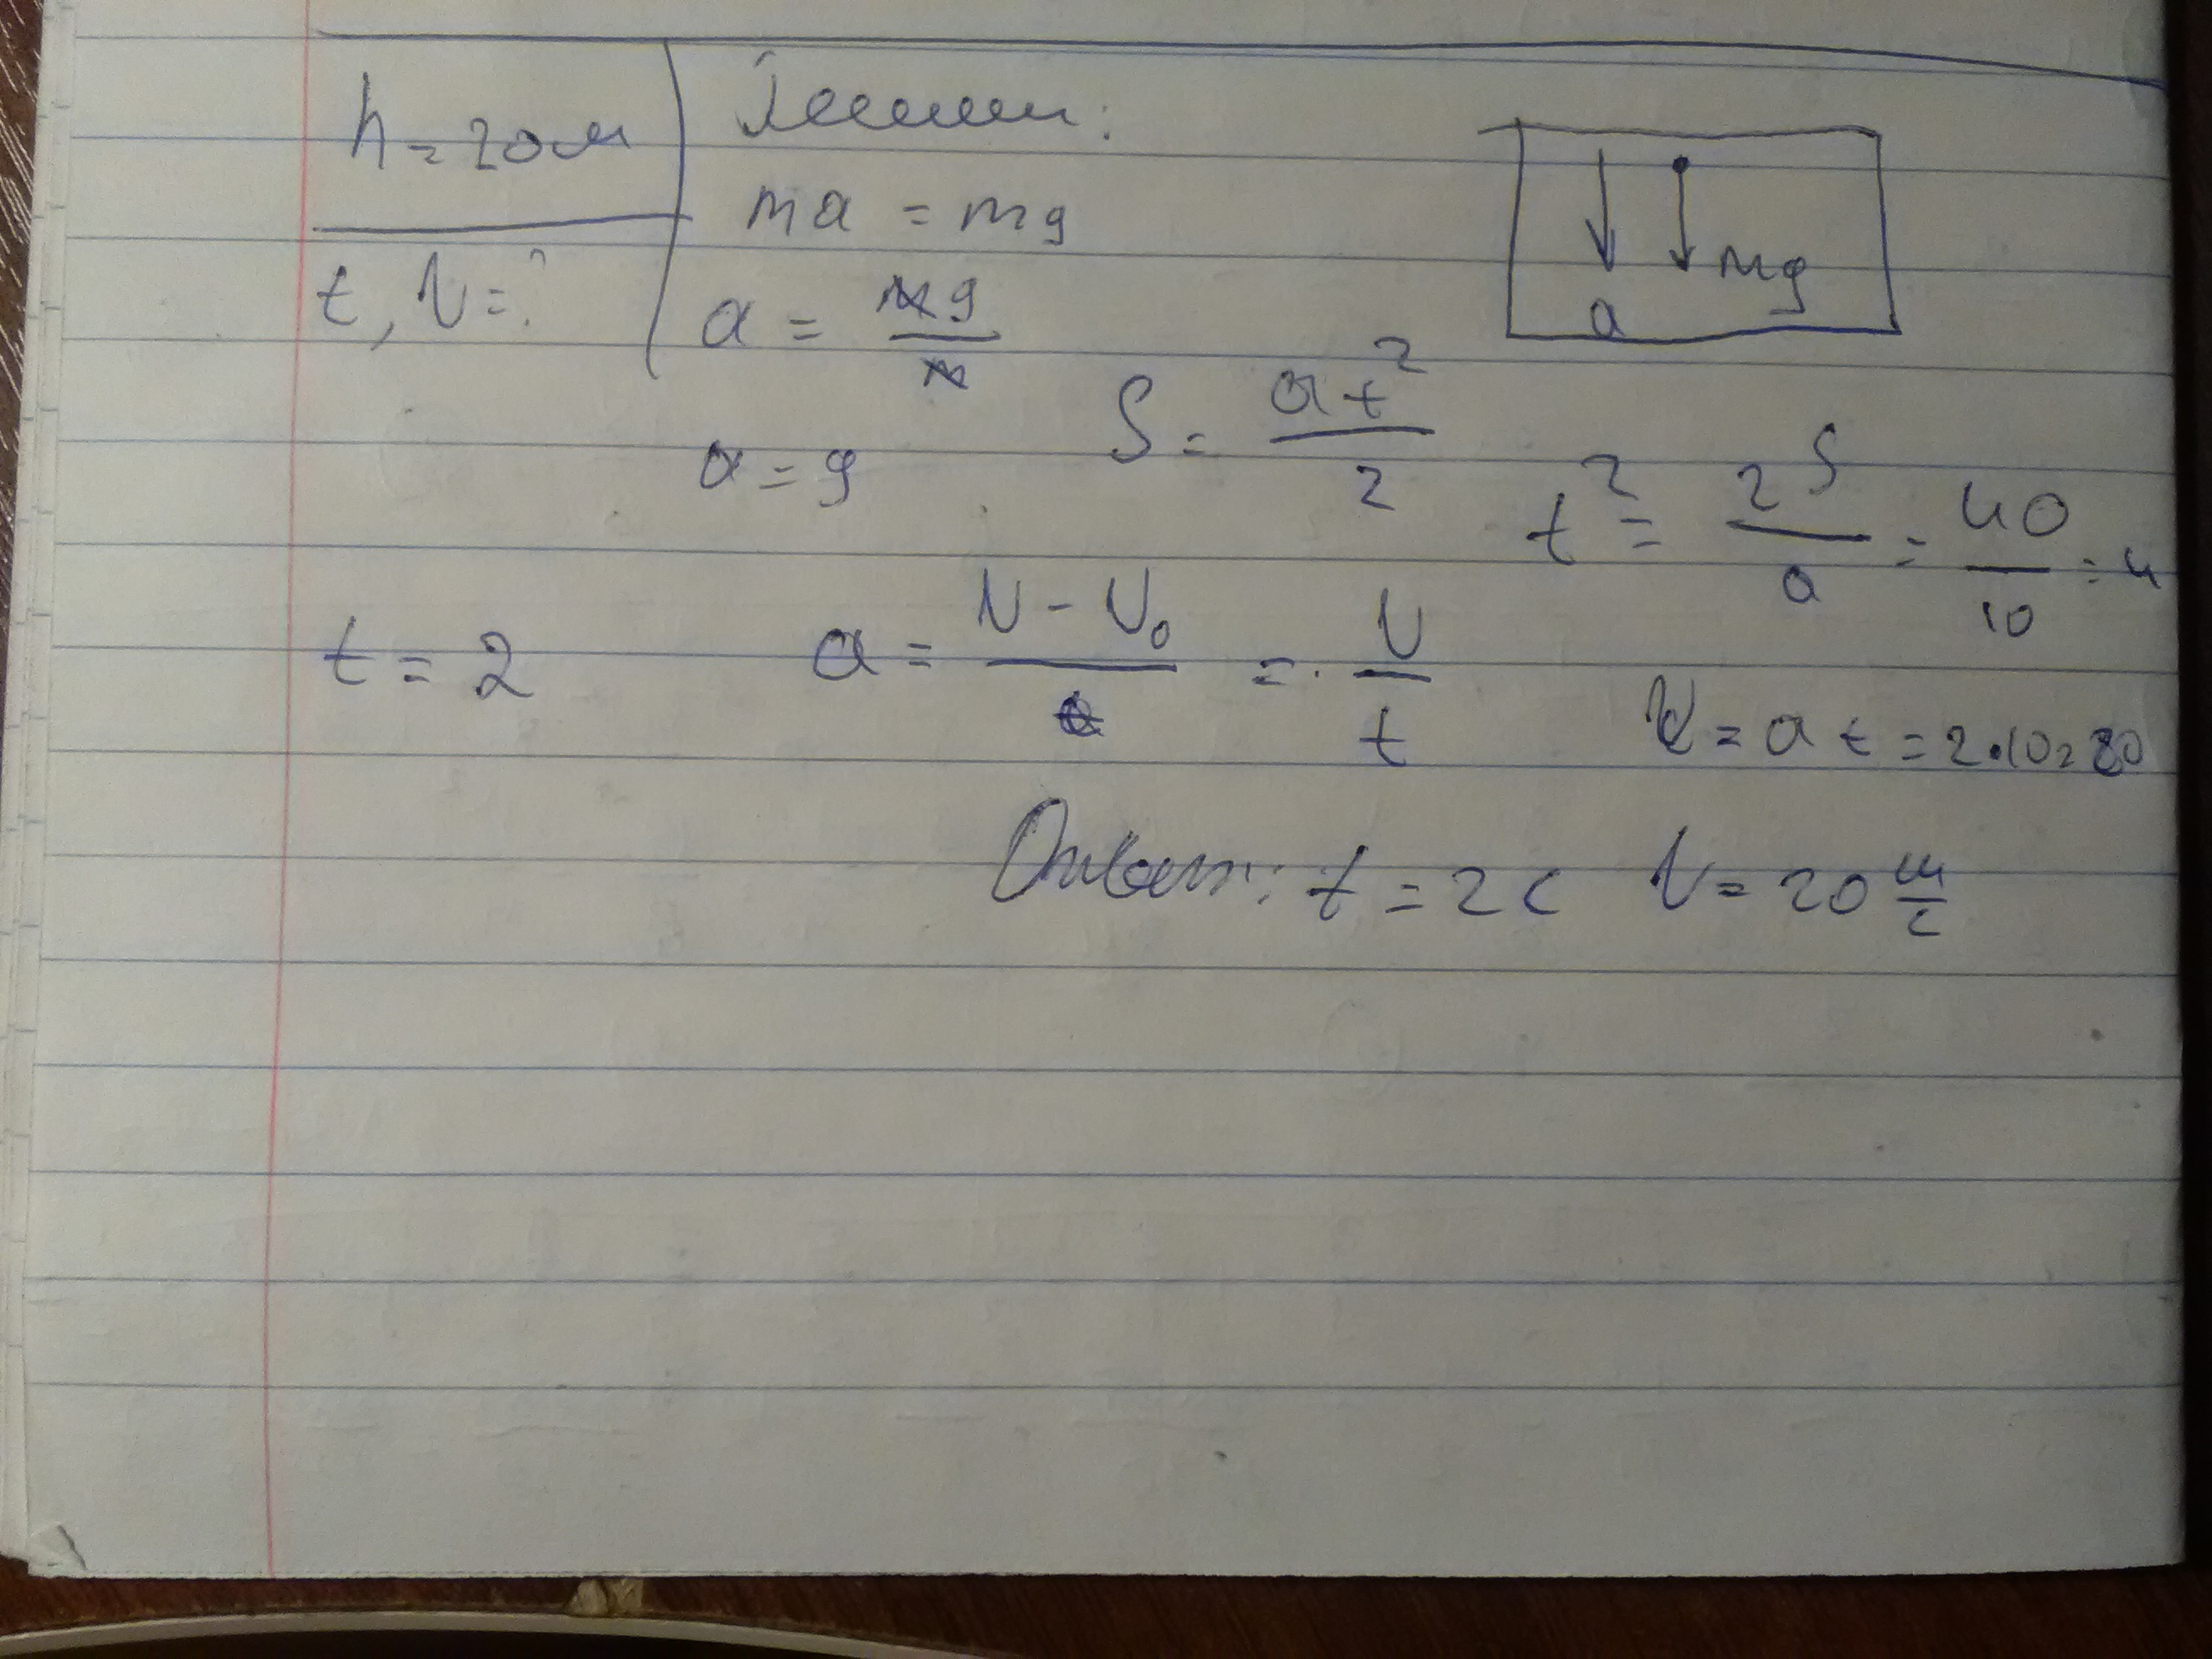 h = 20м
Решение:
ma = mg
t, V = ?
a = mg/m
a
mg
a = g
S = at²/2
t² = 2S/a = 40/10 = 4
t = 2
a = V - V₀ / t = V/t
V = at = 2·10 = 20
Ответ: t = 2с V = 20 м/с